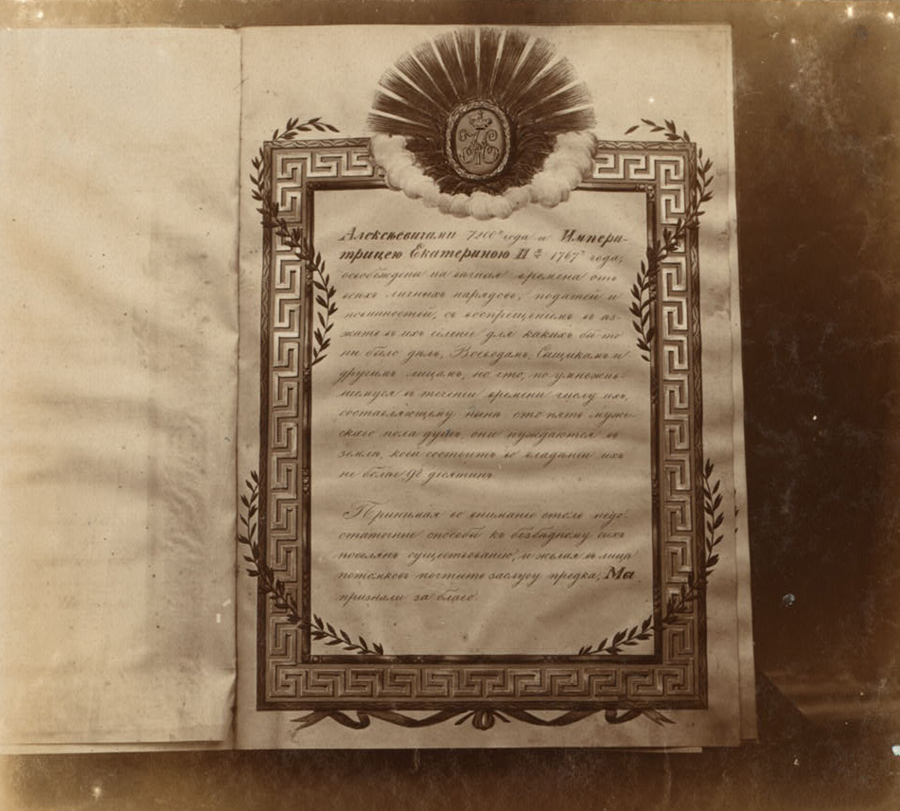 Алексѣевичами 7200го года и Импера-
трицею Екатериною II й 1767го года,
освобождены на вѣчныя времена отъ
всѣхъ личныхъ нарядовъ, податей и
повинностей, съ воспрещеніемъ въѣз-
жать въ ихъ селеніе для какихъ бы то
ни было дѣлъ, Воеводамъ, Сыщикамъ и
другимъ лицамъ, но что, по умножив-
шемуся въ теченіи времени числу ихъ,
составляющему нынѣ сто пять муже-
скаго пола душъ, они нуждаются въ
землѣ, коей состоитъ во владѣніи ихъ
не болѣе 98 десятинъ.
Принимая во вниманіе столь недо-
статочные способы къ безбѣдному сихъ
поселянъ существованію, и желая въ лицѣ
потомковъ почтить заслугу предка, Мы
признали за благо: